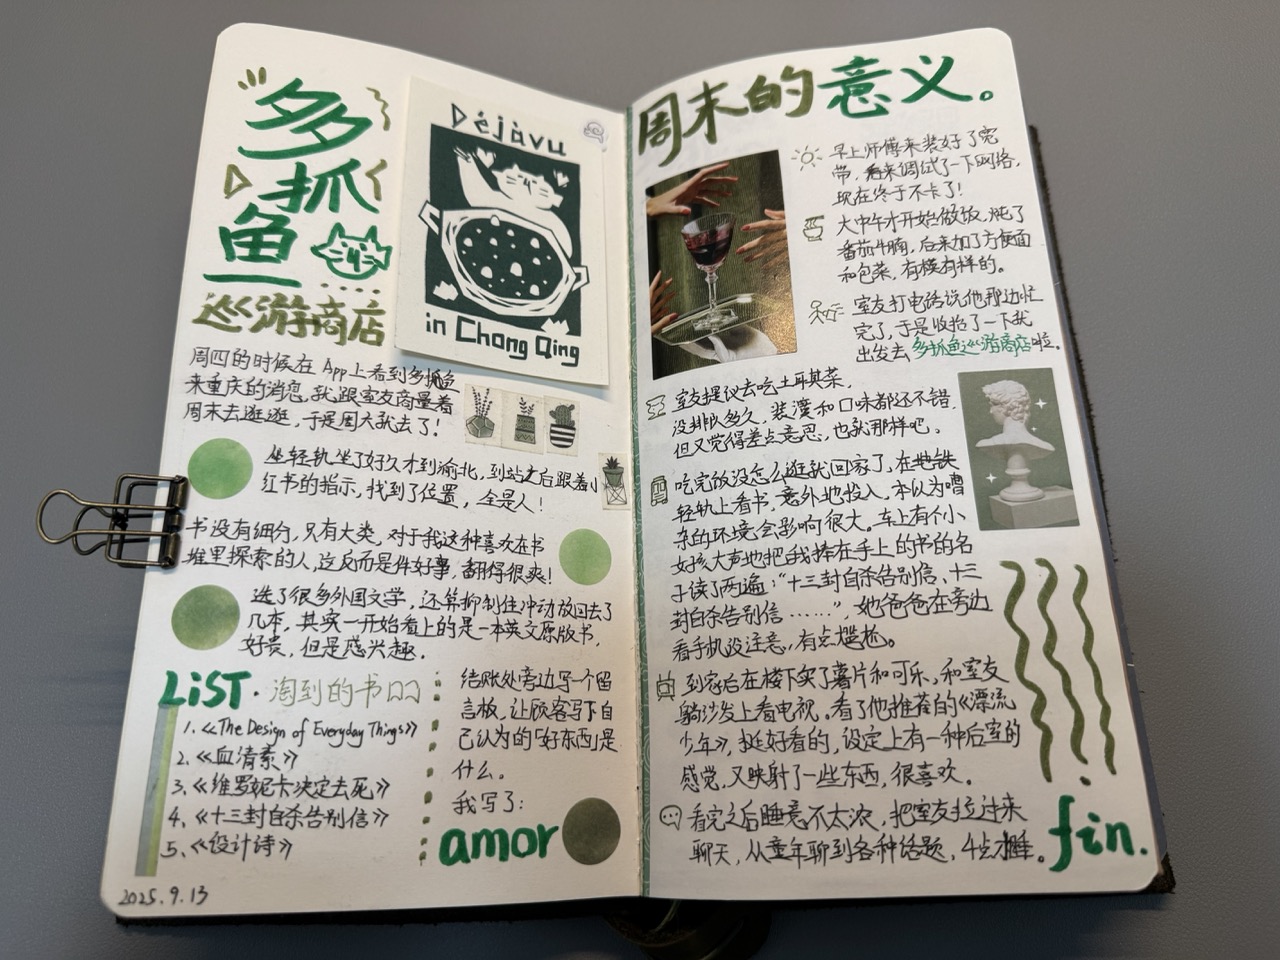 多
抓
鱼
巡游商店
Déjàvu
in Chong Qing
周四的时候在 App上看到多抓鱼
来重庆的消息，就跟室友商量着
周末去逛逛，于是周六就去了！
坐轻轨坐了好久才到渝北，到站之后跟着小
红书的指示，找到了位置，全是人！
书没有细分，只有大类，对于我这种喜欢在书
堆里探索的人，这反而是件好事，翻得很爽！
选了很多外国文学，还算抑制住冲动放回去了
几本，其实一开始看上的是一本英文原版书，
好贵，但是感兴趣。
LiST·淘到的书
1.《The Design of Everyday Things》
2.《血清素》
3.《维罗妮卡决定去死》
4.《十三封自杀告别信》
5.《设计诗》
2025.9.13
结账处旁边写一个留
言板，让顾客写下自
己认为的「好东西」是
什么。
我写了:
amor
周末的意义。
早上师傅来装好了宽
带，再来调试了一下网络，
现在终于不卡了！
大中午才开始做饭，炖了
番茄牛腩，后来加了方便面
和包菜，有模有样的。
室友打电话说他那边忙
完了，于是收拾了一下就
出发去多抓鱼巡游商店啦。
室友提议去吃土耳其菜，
没排队多久，装潢和口味都还不错，
但又觉得差点意思，也就那样吧。
吃完饭没怎么逛就回家了，在地铁
轻轨上看书，意外地投入，本以为嘈
杂的环境会影响很大。车上有个小
女孩大声地把我捧在手上的书的名
子读了两遍：“十三封自杀告别信、十三
封自杀告别信……”，她爸爸在旁边
看手机没注意，有点尴尬。
到家后在楼下买了薯片和可乐，和室友
躺沙发上看电视。看了他推荐的《漂流
少年》，挺好看的，设定上有一种后室的
感觉，又映射了一些东西，很喜欢。
看完之后睡意不太浓，把室友拉过来
聊天，从童年聊到各种话题，4点才睡。
fin.